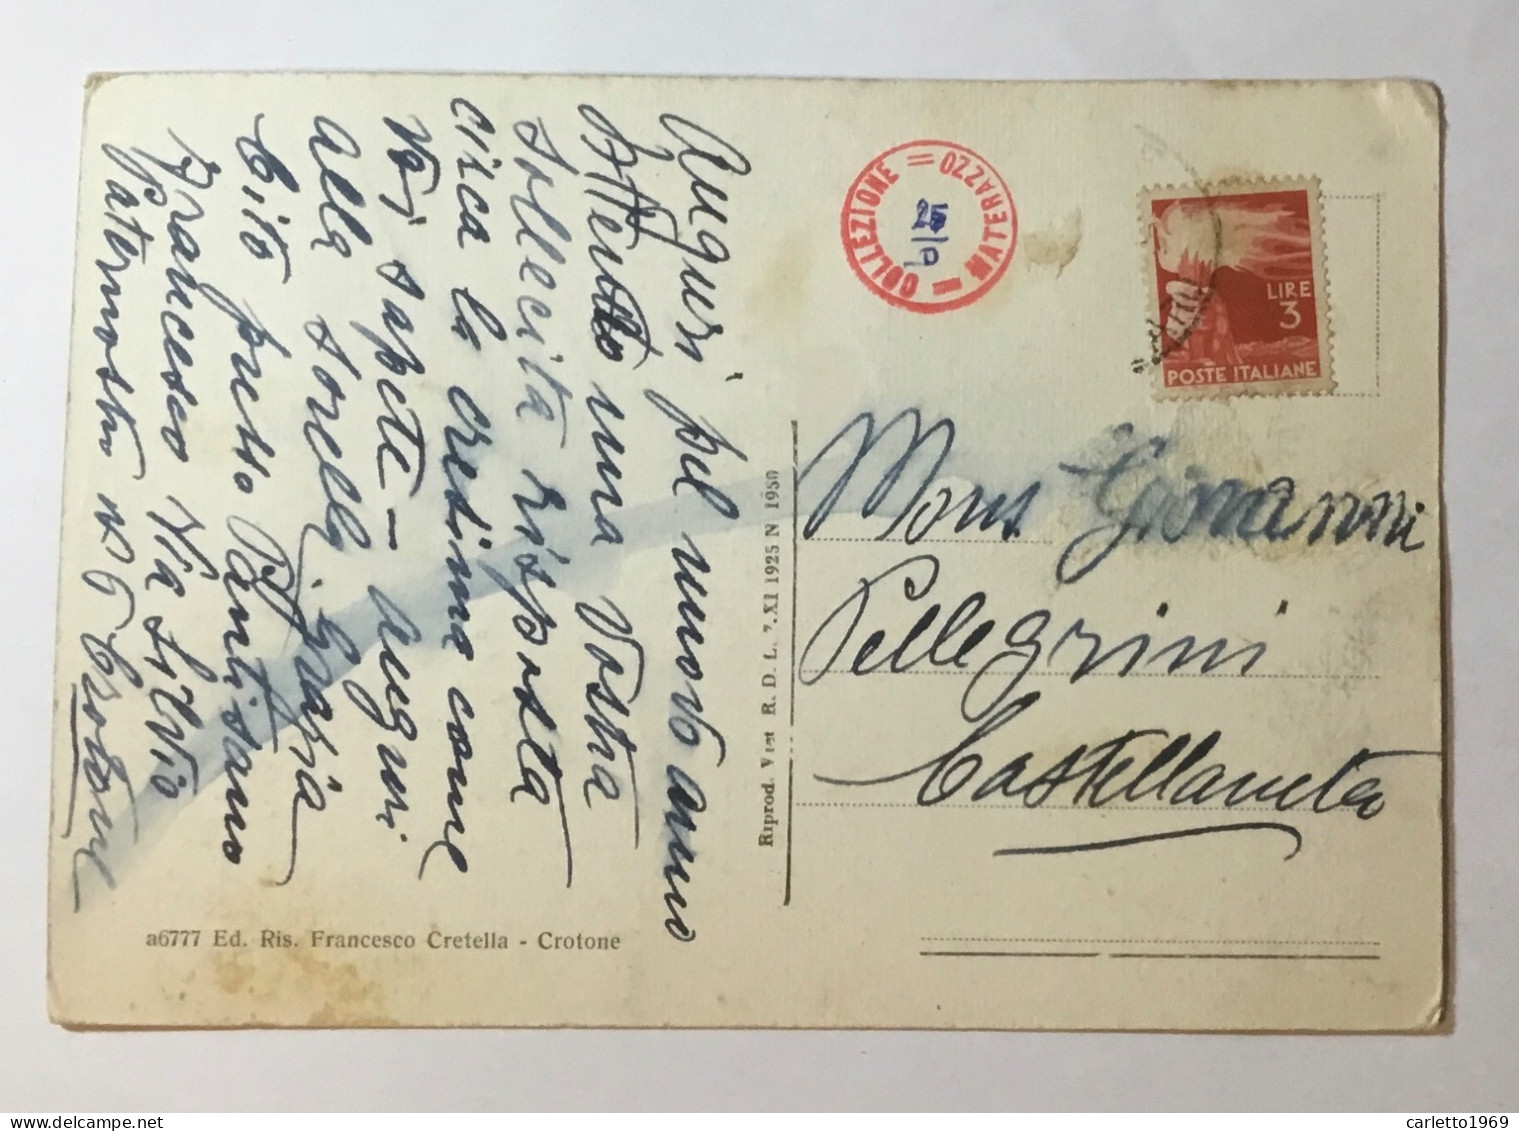 Auguri pel nuovo anno
Attendo una Vostra
sollecita risposta
circa la cresima come
Voi sapete - auguri
alla sorella. Grazia
Cito presso Pantisano
Francesco Via Silvio
Paternostro N 6 Crotone
a6777 Ed. Ris. Francesco Cretella - Crotone
Riprod. Viet R. D. L. 7.XI 1925 N 1950
COLLEZIONE = MATERAZZO =
LIRE
3
POSTE ITALIANE
Mons Giovanni
Pellegrini
Castellaneta
carletto1969